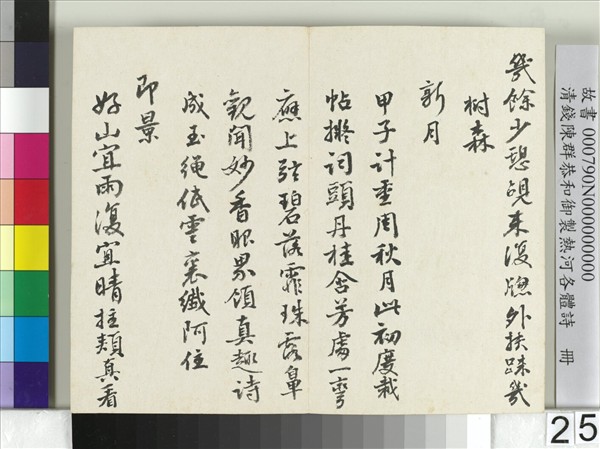 幾餘少憩覙來復牕外扶踈幾
樹森
新月
甲子計重周秋月此初度裁
帖擬詞頭丹桂含芳處一彎
應上弦碧落霏珠露鼻
觀聞妙香眼界領真趣詩
成玉繩低雲裏纖阿住
即景
好山宜雨復宜晴拄頰真看
故書 000790N000000000
清錢陳群恭和御製熱河各體詩 冊
25